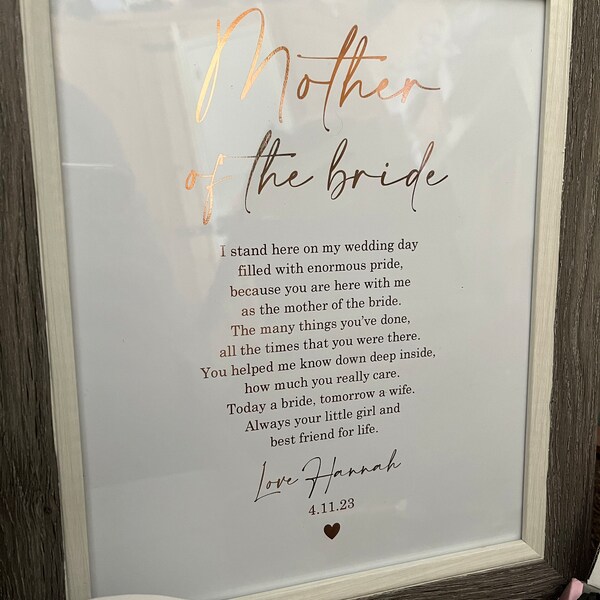 Mother
of the bride
I stand here on my wedding day
filled with enormous pride,
because you are here with me
as the mother of the bride.
The many things you've done,
all the times that you were there.
You helped me know down deep inside,
how much you really care.
Today a bride, tomorrow a wife.
Always your little girl and
best friend for life.
Love Hannah
4.11.23